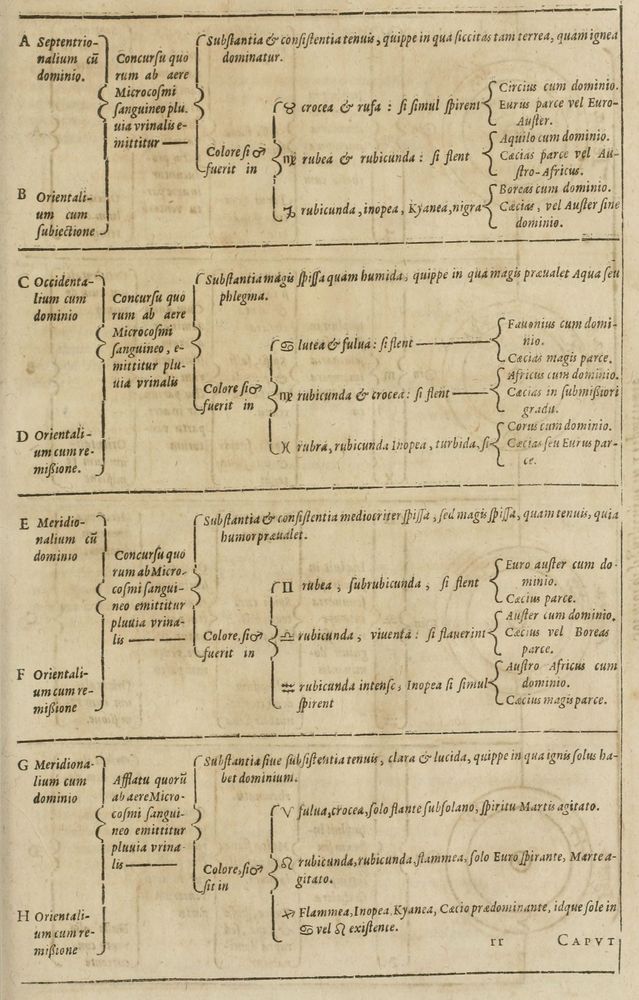 A Septentrio-
nalium cū
dominio.
B Orientali-
um cum
subiectione
Concursu quo
rum ab aere
Microcosmi
sanguineo plu-
uia vrinalis e-
mittitur
Substantia & consistentia tenuis, quippe in qua siccitas tam terrea, quam ignea
dominatur.
Colore si ♂
fuerit in
♉ crocea & rufa : si simul spirent
Circius cum dominio.
Eurus parce vel Euro-
Auster.
♍ rubea & rubicunda : si flent
Aquilo cum dominio.
Cæcias parce vel Au-
stro-Africus.
♑ rubicunda, inopea, Kyanea, nigra
Boreas cum dominio.
Cæcias, vel Auster sine
dominio.
C Occidenta-
lium cum
dominio
D Orientali-
um cum re-
mißione.
Concursu quo
rum ab aere
Microcosmi
sanguineo, e-
mittitur plu-
uia vrinalis
Substantia magis spissa quam humida, quippe in qua magis præualet Aqua seu
phlegma.
Colore si ♂
fuerit in
♋ lutea & fulua : si flent
Fauonius cum domi-
nio.
Cæcias magis parce.
♍ rubicunda & crocea : si flent
Africus cum dominio.
Cæcias in submißiori
gradu.
♓ rubra, rubicunda Inopea, turbida, si
Corus cum dominio.
Cæcias seu Eurus par-
ce.
E Meridio-
nalium cū
dominio
F Orientali-
um cum re-
mißione
Concursu quo
rum ab Micro-
cosmi sangui-
neo emittitur
pluuia vrina-
lis
Substantia & consistentia mediocriter spissa, sed magis spissa, quam tenuis, quia
humor præualet.
Colore, si ♂
fuerit in
♊ rubea, subrubicunda, si flent
Euro auster cum do-
minio.
Cæcius parce.
♎ rubicunda, viuenta : si flauerint
Auster cum dominio.
Cæcius vel Boreas
parce.
♒ rubicunda intense, Inopea si simul
spirent
Austro Africus cum
dominio.
Cæcius magis parce.
G Meridiona-
lium cum
dominio
H Orientali-
um cum re-
mißione
Afflatu quorū
ab aere Micro-
cosmi sangui-
neo emittitur
pluuia vrina-
lis
Substantia siue subsistentia tenuis, clara & lucida, quippe in qua ignis solus ha-
bet dominium.
Colore, si ♂
sit in
♈ fulua, crocea, solo flante subsolano, spiritu Martis agitato.
♌ rubicunda, rubicunda, flammea, solo Euro spirante, Marte a-
gitato.
♐ Flammea, Inopea, Kyanea, Cæcio prædominante, idque sole in
♋ vel ♌ existente.
rr CAPVT